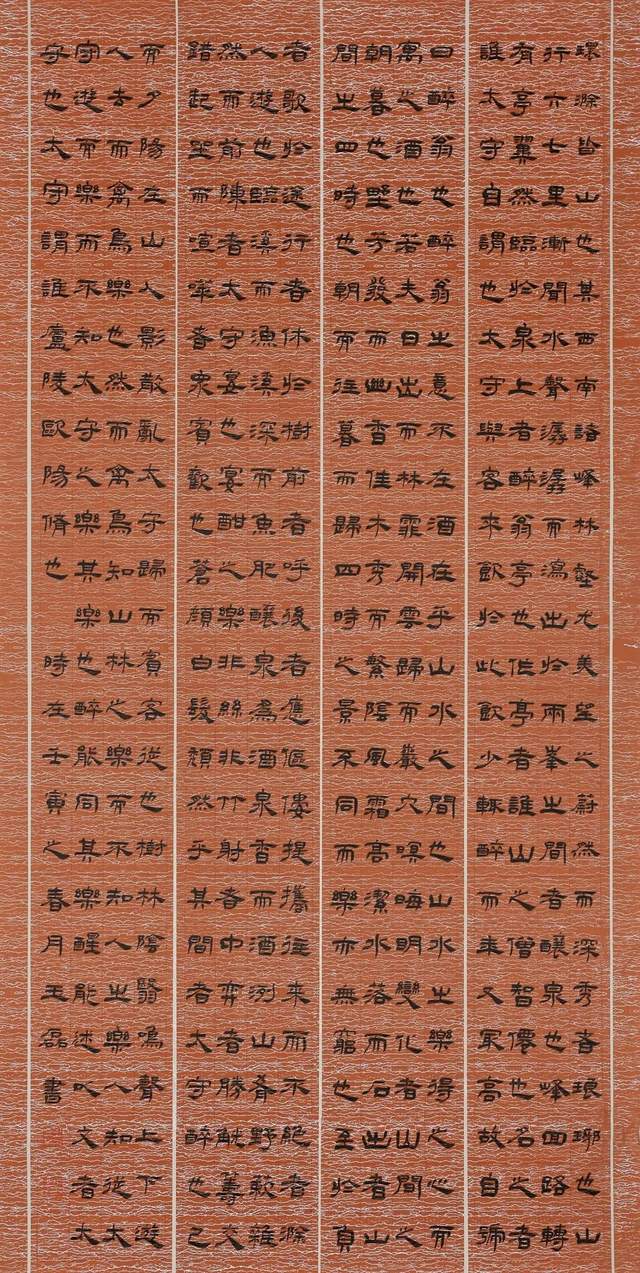 環滁皆山也其西南諸峰林壑尤美望之蔚然而深秀者琅琊也山
行六七里漸聞水聲潺潺而瀉出於兩峯之間者釀泉也峰回路轉
有亭翼然臨於泉上者醉翁亭也作亭者誰山之僧智僊也名之者
誰太守自謂也太守與客來飲於此飲少輒醉而年又最高故自號
曰醉翁也醉翁之意不在酒在乎山水之間也山水之樂得之心而
寓之酒也若夫日出而林霏開雲歸而巖穴暝晦明變化者山間之
朝暮也野芳發而幽香佳木秀而繁陰風霜高潔水落而石出者山
間之四時也朝而往暮而歸四時之景不同而樂亦無窮也至於負
者歌於途行者休於樹前者呼後者應傴僂提攜往來而不絕者滁
人遊也臨溪而漁溪深而魚肥釀泉為酒泉香而酒洌山肴野蔌雜
然而前陳者太守宴也宴酣之樂非絲非竹射者中弈者勝觥籌交
錯起坐而喧嘩者眾賓歡也蒼顏白髮頹然乎其間者太守醉也已
而夕陽在山人影散亂太守歸而賓客從也樹林陰翳鳴聲上下遊
人去而禽鳥樂也然而禽鳥知山林之樂而不知人之樂人知從太
守遊而樂而不知太守之樂其樂也醉能同其樂醒能述以文者太
守也太守謂誰廬陵歐陽脩也 時在壬寅之春月王磊書